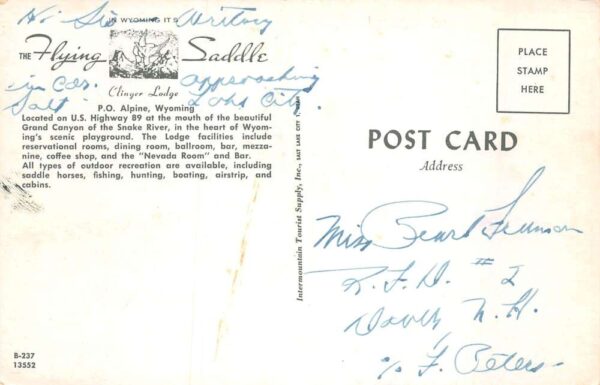 Hi Sis Writing
IN WYOMING IT'S
THE Flying Saddle
in car. approaching
Clinger Lodge
Salt Lake City.
P.O. Alpine, Wyoming
Located on U.S. Highway 89 at the mouth of the beautiful
Grand Canyon of the Snake River, in the heart of Wyom-
ing's scenic playground. The Lodge facilities include
reservational rooms, dining room, ballroom, bar, mezza-
nine, coffee shop, and the "Nevada Room" and Bar.
All types of outdoor recreation are available, including
saddle horses, fishing, hunting, boating, airstrip, and
cabins.
B-237
13552
Intermountain Tourist Supply, Inc., SALT LAKE CITY 1, UTAH
PLACE
STAMP
HERE
POST CARD
Address
Miss Pearl
R.F.D. #2
Dover N.H.
% F. Peters